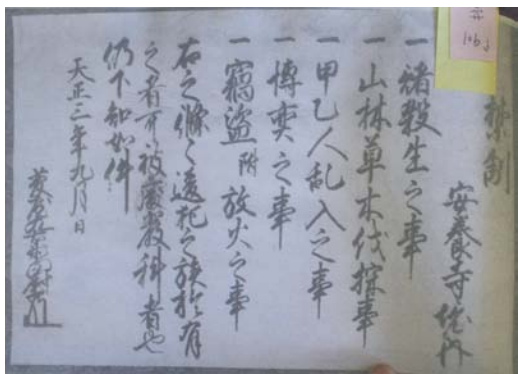 禁制
安養寺境内
一 諸殺生之事
一 山林草木伐採事
一 甲乙人乱入之事
一 博奕之事
一 窃盗附放火之事
右之條々違犯之族於有
之者可被處嚴科者也
仍下知如件
天正三年九月日